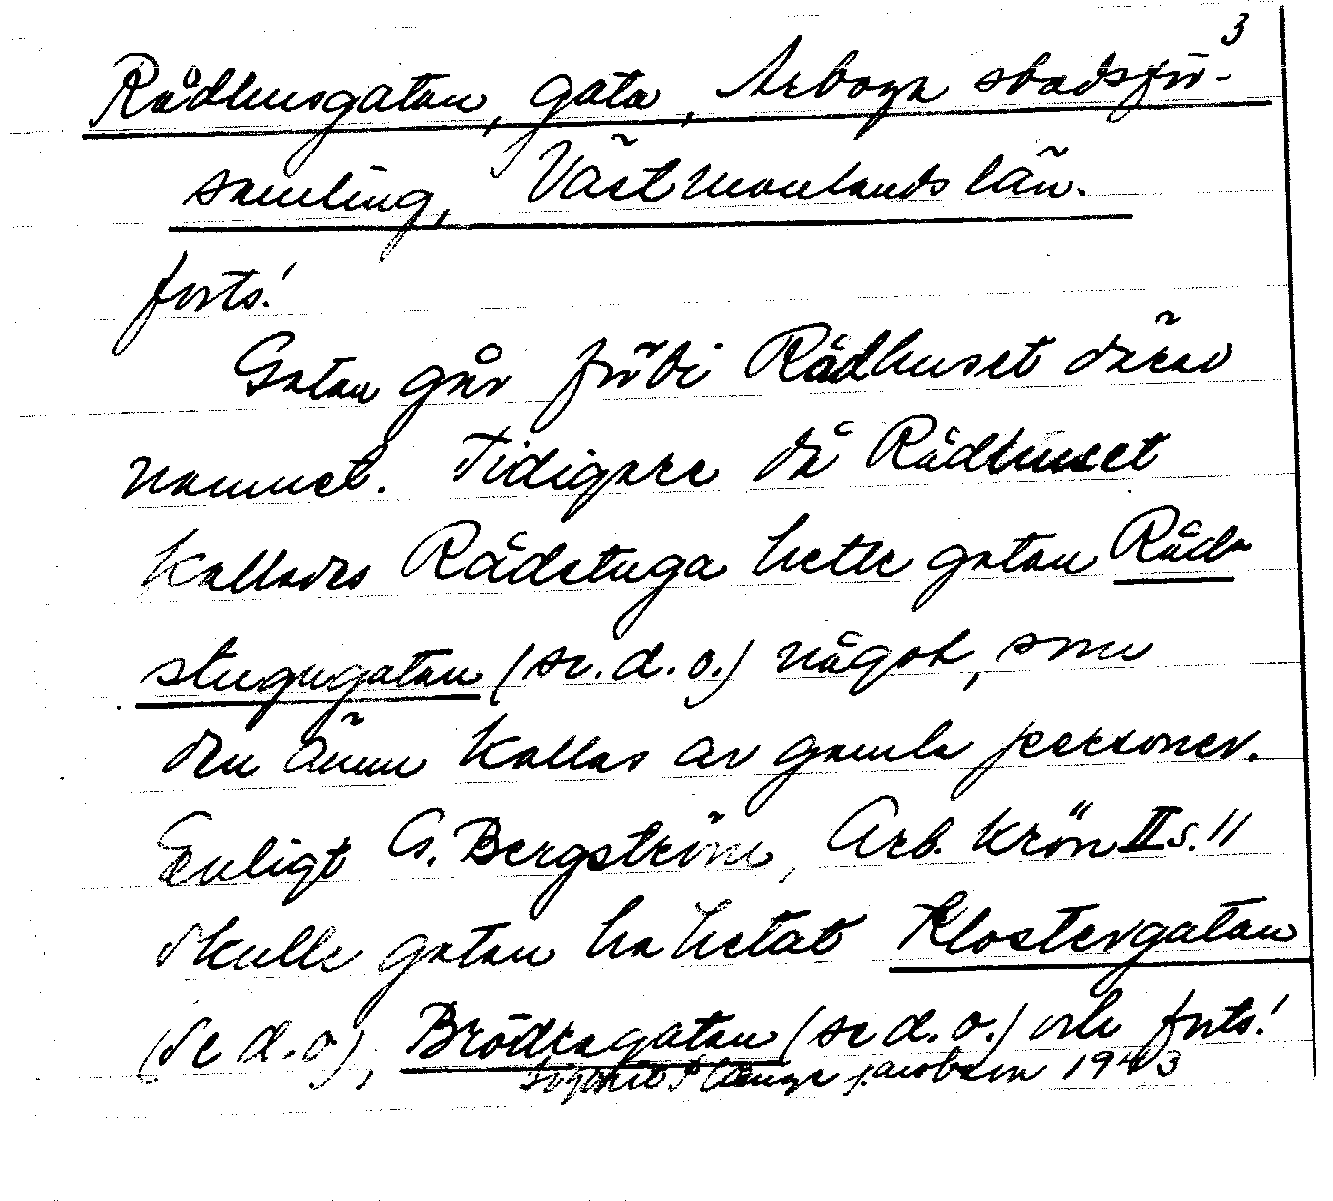 3
Rådhusgatan, gata, Arboga stadsför-
samling, Västmanlands län.
forts!
Gatan går förbi Rådhuset därav
namnet. Tidigare då Rådhuset
kallades Rådstuga hette gatan Råd-
stugugatan (se.d.o.) något, som
den ännu kallas av gamla personer.
Enligt G. Bergström, Arb. krön II s. 11
skulle gatan ha hetat Klostergatan
(se d.o), Brödragatan (se d.o.) och forts!
Jacobson 1943